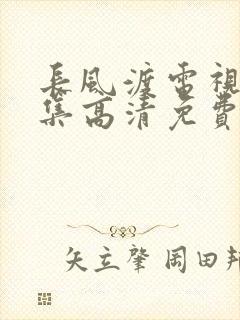 長風渡電視
集高清免費
矢立肇 岡田邦